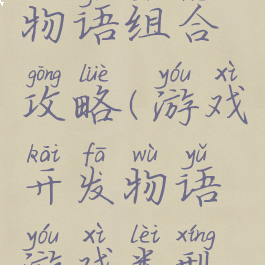 物语组合
gōng lüè yóu xì
攻略(游戏
kāi fā wù yǔ
开发物语
yóu xì lèi xíng
游戏类型